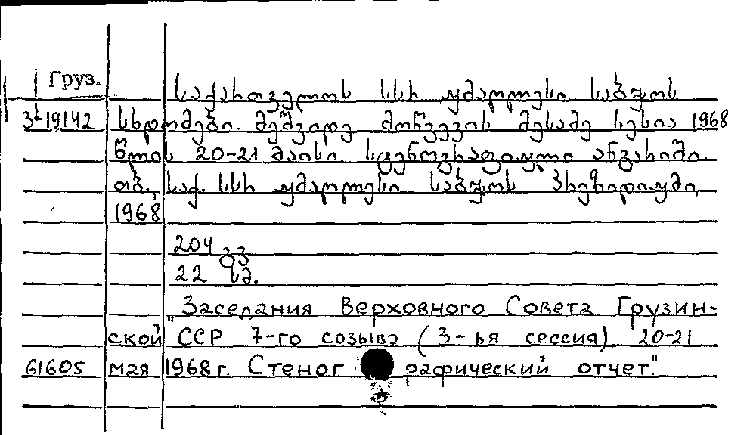 Груз.
საქართველოს სსრ უმაღლესი საბჭოს
3⁴19142 სხდომები. მეშვიდე მოწვევის მესამე სესია 1968
წლის 20-21 მაისი. სტენოგრაფიული ანგარიში.
თბ., საქ. სსრ უმაღლესი საბჭოს პრეზიდიუმი,
1968
204 გვ.
22 სმ.
"Заседания Верховного Совета Грузин-
ской ССР 7-го созыва (3-ья сессия). 20-21
61605 мая 1968 г. Стенографический отчет."